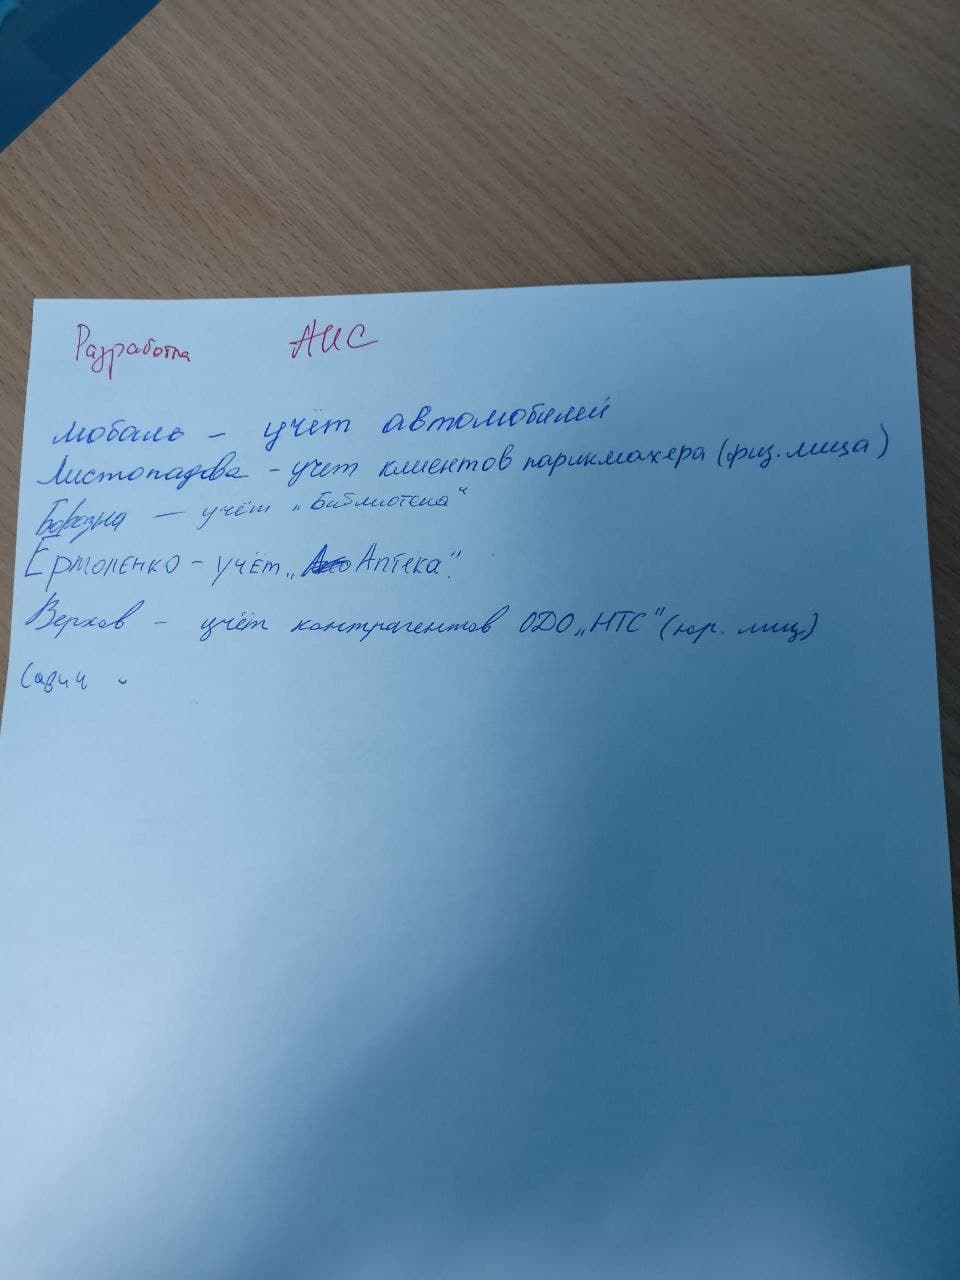 Разработка АИС
Мобаль - учёт автомобилей
Листопадова - учет клиентов парикмахера (физ. лица)
Борозна - учёт „Библиотека“
Ермоленко - учёт „Аптека“.
Верхов - учёт контрагентов ОДО „НТС“ (юр. лиц)
Савич -